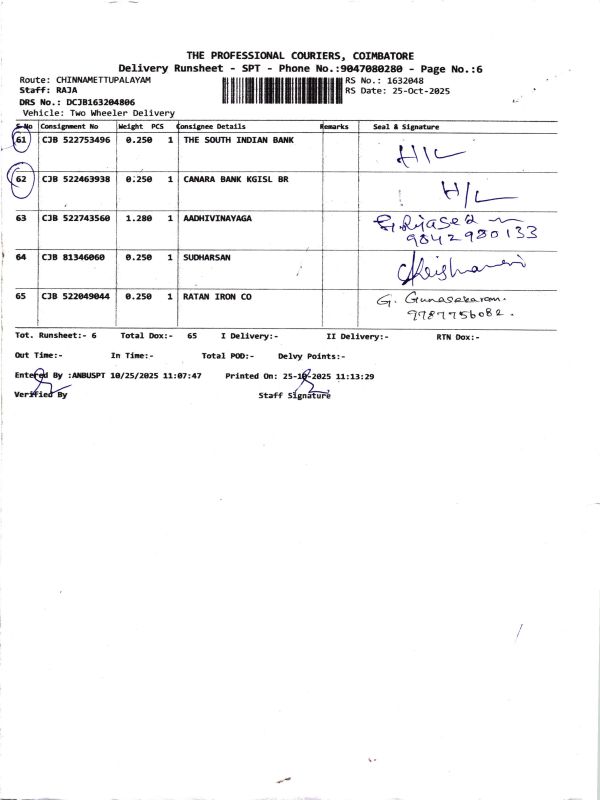 THE PROFESSIONAL COURIERS, COIMBATORE
Delivery Runsheet - SPT - Phone No.:9047080280 - Page No.:6
Route: CHINNAMETTUPALAYAM RS No.: 1632048
Staff: RAJA RS Date: 25-Oct-2025
DRS No.: DCJB163204806
Vehicle: Two Wheeler Delivery
S.No Consignment No Weight PCS Consignee Details Remarks Seal & Signature
61 CJB 522753496 0.250 1 THE SOUTH INDIAN BANK H/L
62 CJB 522463938 0.250 1 CANARA BANK KGISL BR H/L
63 CJB 522743560 1.280 1 AADHIVINAYAGA
9842980133
64 CJB 81346060 0.250 1 SUDHARSAN
65 CJB 522049044 0.250 1 RATAN IRON CO G. Gunasekaran.
9787756082.
Tot. Runsheet:- 6 Total Dox:- 65 I Delivery:- II Delivery:- RTN Dox:-
Out Time:- In Time:- Total POD:- Delvy Points:-
Entered By :ANBUSPT 10/25/2025 11:07:47 Printed On: 25-10-2025 11:13:29
Verified By Staff Signature